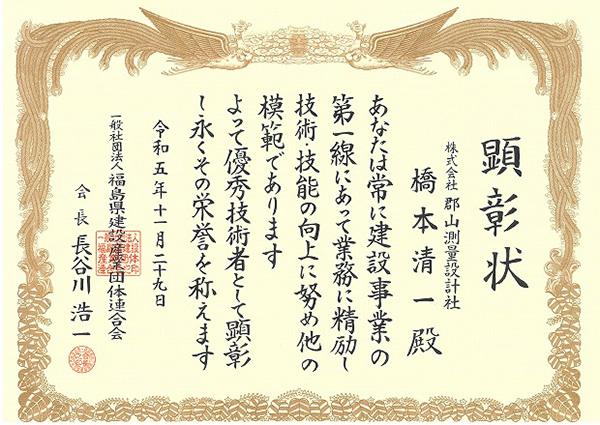 顕彰状
株式会社 郡山測量設計社
橋本清一殿
あなたは常に建設事業の
第一線にあって業務に精励し
技術・技能の向上に努め他の
模範であります
よって優秀技術者として顕彰
し永くその栄誉を称えます
令和五年十一月二十九日
一般社団法人 福島県建設産業団体連合会
会長 長谷川浩一